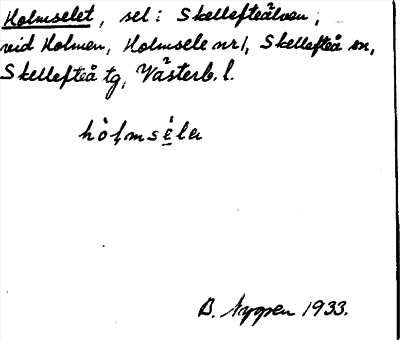 Holmselet, sel i Skellefteälven,
vid Holmen, Holmsele nr 1, Skellefteå sn,
Skellefteå tg, Västerb. l.
hòl̥msé̲la
B. Nygren 1933.